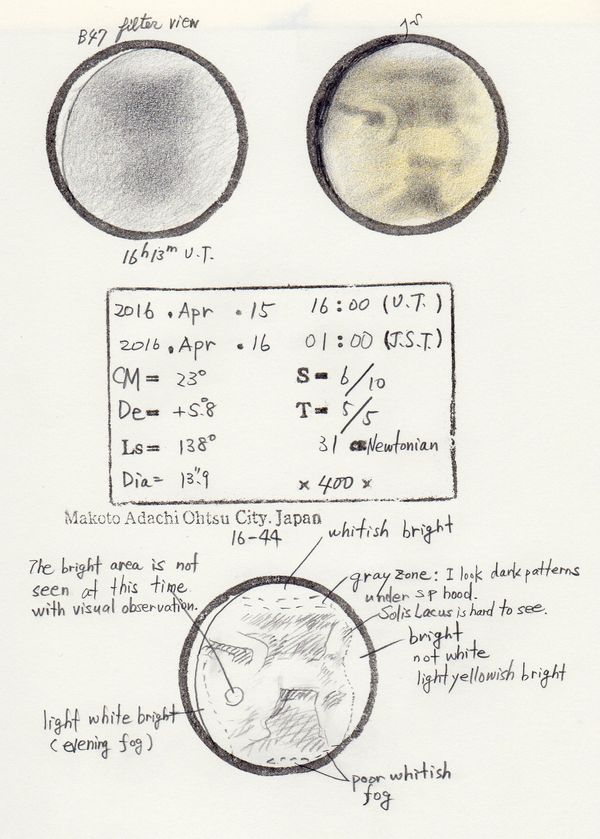 B47 filter view
16h13m U.T.
2016 . Apr . 15 16:00 (U.T.)
2016 . Apr . 16 01:00 (J.S.T.)
CM= 23° S= 6/10
De= +5.°8 T= 5/5
Ls= 138° 31 cm Newtonian
Dia= 13."9 × 400 ×
Makoto Adachi Ohtsu City. Japan
16-44
whitish bright
The bright area is not
seen at this time
with visual observation.
gray zone: I look dark patterns
under SP hood.
Solis Lacus is hard to see.
bright
not white
light yellowish bright
light white bright
(evening fog)
poor whitish
fog